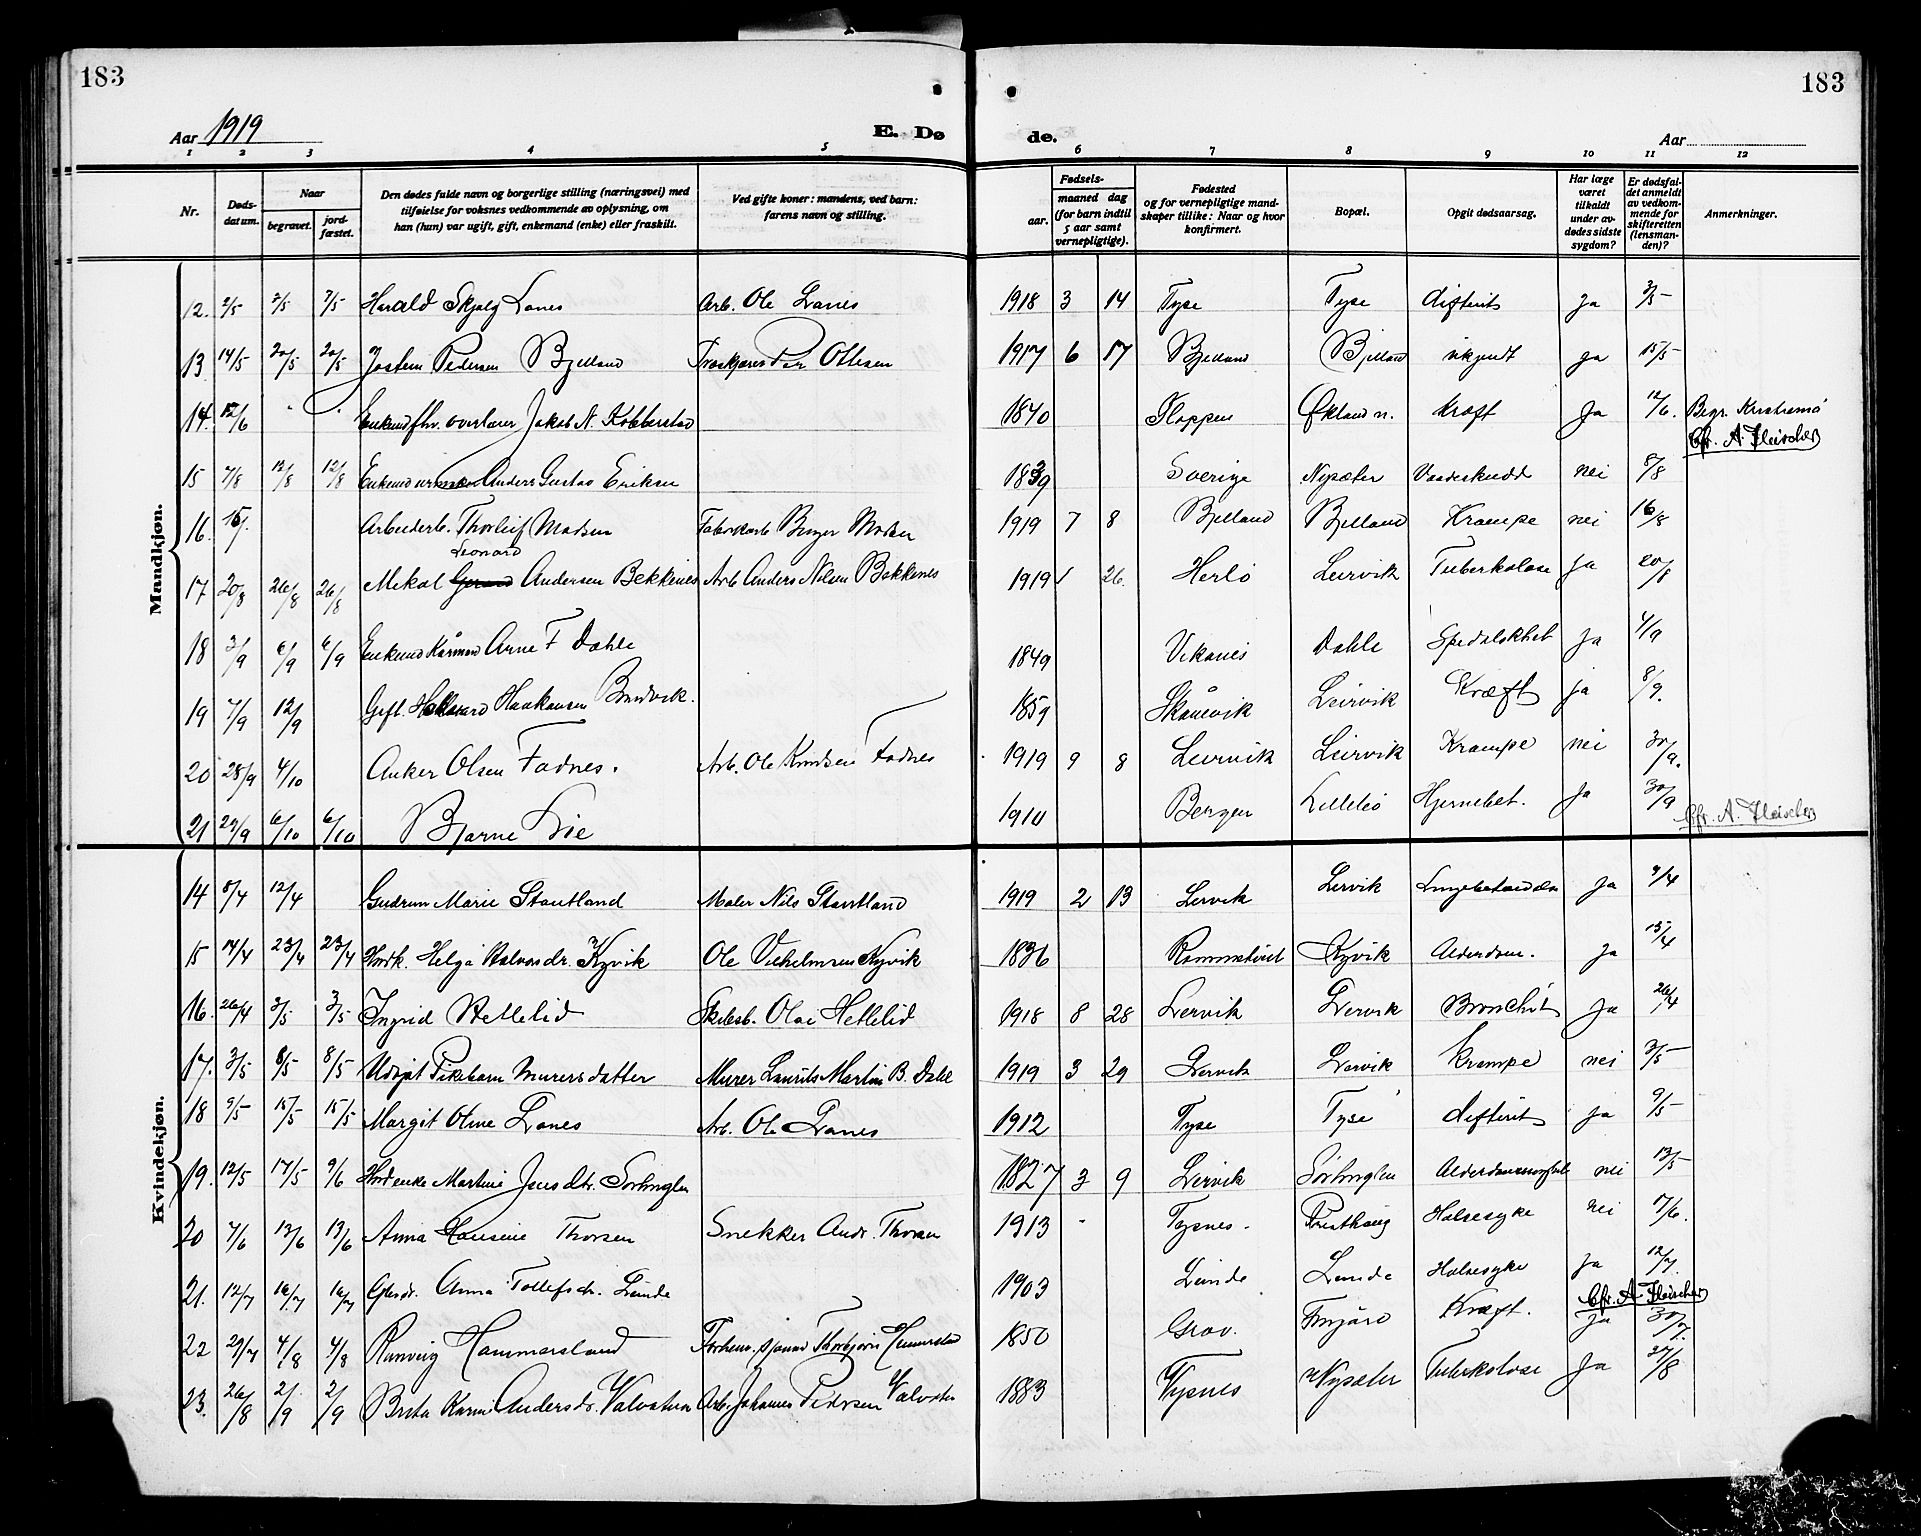 183
183
Aar 1919
E. Dø
de.
Aar
1 2 3 4 5 6 7 8 9 10 11 12
Nr.
Døds-
datum.
Naar
begravet.
jord-
fæstet.
Den dødes fulde navn og borgerlige stilling (næringsvei) med
tilføielse for voksnes vedkommende av oplysning, om
han (hun) var ugift, gift, enkemand (enke) eller fraskilt.
Ved gifte koner: mandens, ved barn:
farens navn og stilling.
Fødsels-
aar.
maaned dag
(for barn indtil
5 aar samt
vernepligtige).
Fødested
og for vernepligtige mand-
skaper tillike: Naar og hvor
konfirmert.
Bopæl.
Opgit dødsaarsag.
Har læge
været
tilkaldt
under av-
dødes sidste
sygdom?
Er dødsfal-
det anmeldt
av vedkom-
mende for
skifteretten
(lensman-
den)?
Anmerkninger.
Mandkjøn.
12. 2/5 7/5 7/5 Harald Skjolg Lanes Arb. Ole Lanes 1918 3 14 Tyse Tyse difterit ja 3/5
13 14/5 20/5 20/5 Jostein Pedersen Bjelland Ottesen 1917 6 17 Bjelland Bjelland ukjendt ja 15/5
14. 12/6 " " Enkemd fhv. overlærer Jakob N. Kobberstad 1840 Gloppen Økland n. Kræft Ja 12/6. Begr. Kristiansø
Cfr. A. Fleischer
15 7/8 12/8 12/8 Enkemd urmaker Anders Gustav Eriksen 1839 Sverige Nysæter Vaadeskudd nei 8/8
16. 15/7. Arbeiderb. Thorleif Madsen Fabrikarb. Birger Madsen 1919 7 8 Bjelland Bjelland Krampe nei 16/8
Leonard
17 20/8 26/8 26/8 Mikal Andersen Bekkenes Arb. Anders Nilsen Bekkenes 1919 1 26. Herlø Leirvik Tuberkolose Ja 20/8
18 3/9 6/9 6/9 Enkemd Kårmd Arne F Dahle 1849 Vikanes Dahle Spedalskhet Ja 4/9
19 7/9 12/9 Gift. Halvard Haakonsen Bruvik. 1859 Skånevik Leirvik Kræft ja 8/9.
20 28/9 4/10 Anker Olsen Fadnes. Arb. Ole Knutsen Fadnes 1919 9 8 Leirvik Leirvik Krampe nei 30/9.
21 29/9 6/10 6/10 Bjarne 1910 Bergen Lillebø Hjernebet. Ja 30/9
Cfr. A. Fleischer
Kvindekjøn.
14 8/4 12/4 Gudrun Marie Stautland Maler Nils Stautland 1919 2 13 Lervik Lervik Lungebetændelse Ja 9/4
15 14/4 23/4 23/4 Helga Halvorsdr. Kyvik Ole Vilhelmsen Kyvik 1836 Rommetveit Kyvik Alderdom. Ja 15/4
16. 26/4 3/5 3/5 Ingrid Hetlelid Olai Hetlelid 1918 8 28 Lervik Lervik Bronchit Ja 26/4
17. 3/5 8/5 8/5 Udøpt Pikebarn Murersdatter Murer Laurits Martin B. Dale 1919 3 29 Lervik Lervik Krampe nei 3/5
18 9/5 15/5 15/5 Margit Oline Lanes Arb. Ole Lanes 1912 Tyse Tyse difterit ja 9/5
19. 12/5 17/5 9/6 Martine Jensdtr. Sørhuglen 1827 3 9 Lervik Sørhuglen nei 13/5
20 7/6 13/6 13/6 Anna Hansine Thorsen Snekker Andr. Thorsen 1913 " Tysnes. Presthaug Halsesyke nei 17/6.
21. 12/7 16/7 16/7 Gbrdr. Anna Tollefsdr. Lunde 1903 Lunde Lunde Halsesyke Ja 12/7.
Cfr. A Fleischer
22 29/7 4/8 4/8 Rannveig Hammarsland Thorbjørn 1850 Grov. Kræft. Ja 30/7.
23. 26/8 2/9 2/9 Brita Karin Andersdr. Valvatna Arb. Johannes Pedersen Valvatn 1883 Tysnes Nysæter Tuberkolose Ja 27/8